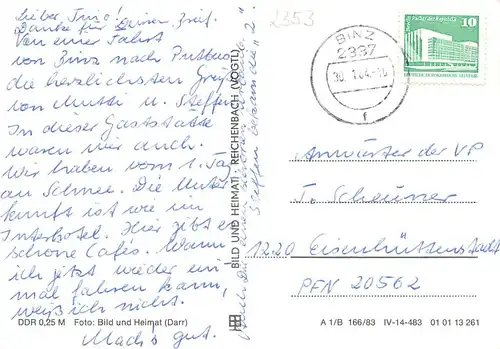 Lieber Ingo!
Danke für Deinen Brief.
Von einer Fahrt
von Binz nach Putbus
die herzlichsten Grüße
von Mutti u. Steffen
In dieser Gaststätte
waren wir auch.
Wir haben vom 1. Tag
an Schnee. Die Unter
kunft ist wie im
Interhotel. Hier gibt es
schöne Cafés. Wann
ich jetzt wieder ein
mal fahren kann,
weiß ich nicht.
Mach's gut.
DDR 0,25 M Foto: Bild und Heimat (Darr)
BILD UND HEIMAT · REICHENBACH (VOGTL)
2353
BINZ
2337
f
Palast der Republik
10
DEUTSCHE DEMOKRATISCHE REPUBLIK
Anwärter der VP
I. Scheuner
1220 Eisenhüttenstadt
PFN 20562
A 1/B 166/83 IV-14-483 01 01 13 261